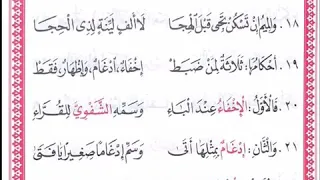 ١٨. وَالْمِيمُ إِنْ تَسْكُنْ تَجِي قَبْلَ الْهِجَا لَا أَلِفٍ لَيِّنَةٍ لِذِي الْحِجَا
١٩. أَحْكَامُهَا: ثَلَاثَةٌ لِمَنْ ضَبَطْ إِخْفَاءٌ، ادْغَامٌ، وَإِظْهَارٌ فَقَطْ
٢٠. فَالْأَوَّلُ: الْإِخْفَاءُ عِنْدَ الْبَاءِ وَسَمِّهِ الشَّفْوِيَّ لِلْقُرَّاءِ
٢١. وَالثَّانِ: إِدْغَامٌ بِمِثْلِهَا أَتَى وَسَمِّ إِدْغَامًا صَغِيرًا يَا فَتَى